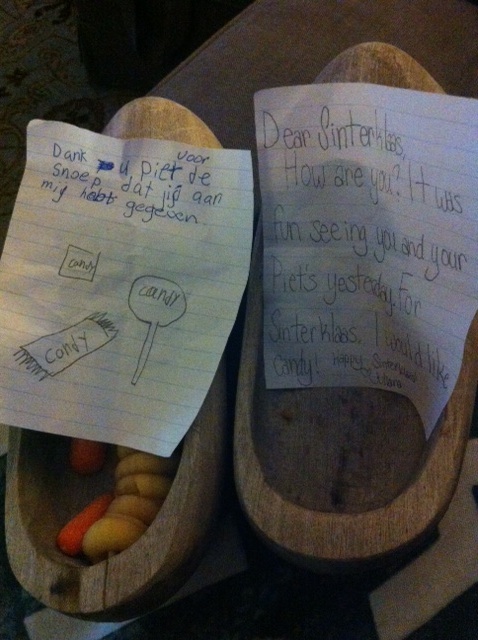 Dank u piet voor de
snoep dat jij aan
mij hebt gegeven.
candy
candy
candy
Dear Sinterklaas,
How are you? It was
fun seeing you and your
Piet's yesterday. For
Sinterklaas, I would like
candy! Happy